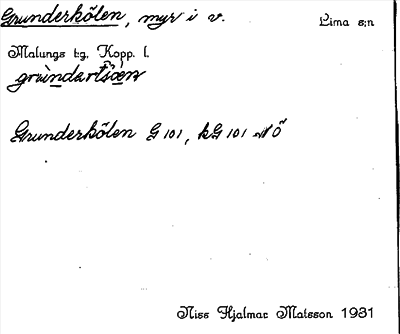 Grunderkölen, myr i v. Lima s:n
Malungs t:g, Kopp. l.
Grunderkölen G 101, kG 101 NÖ
Niss Hjalmar Matsson 1931